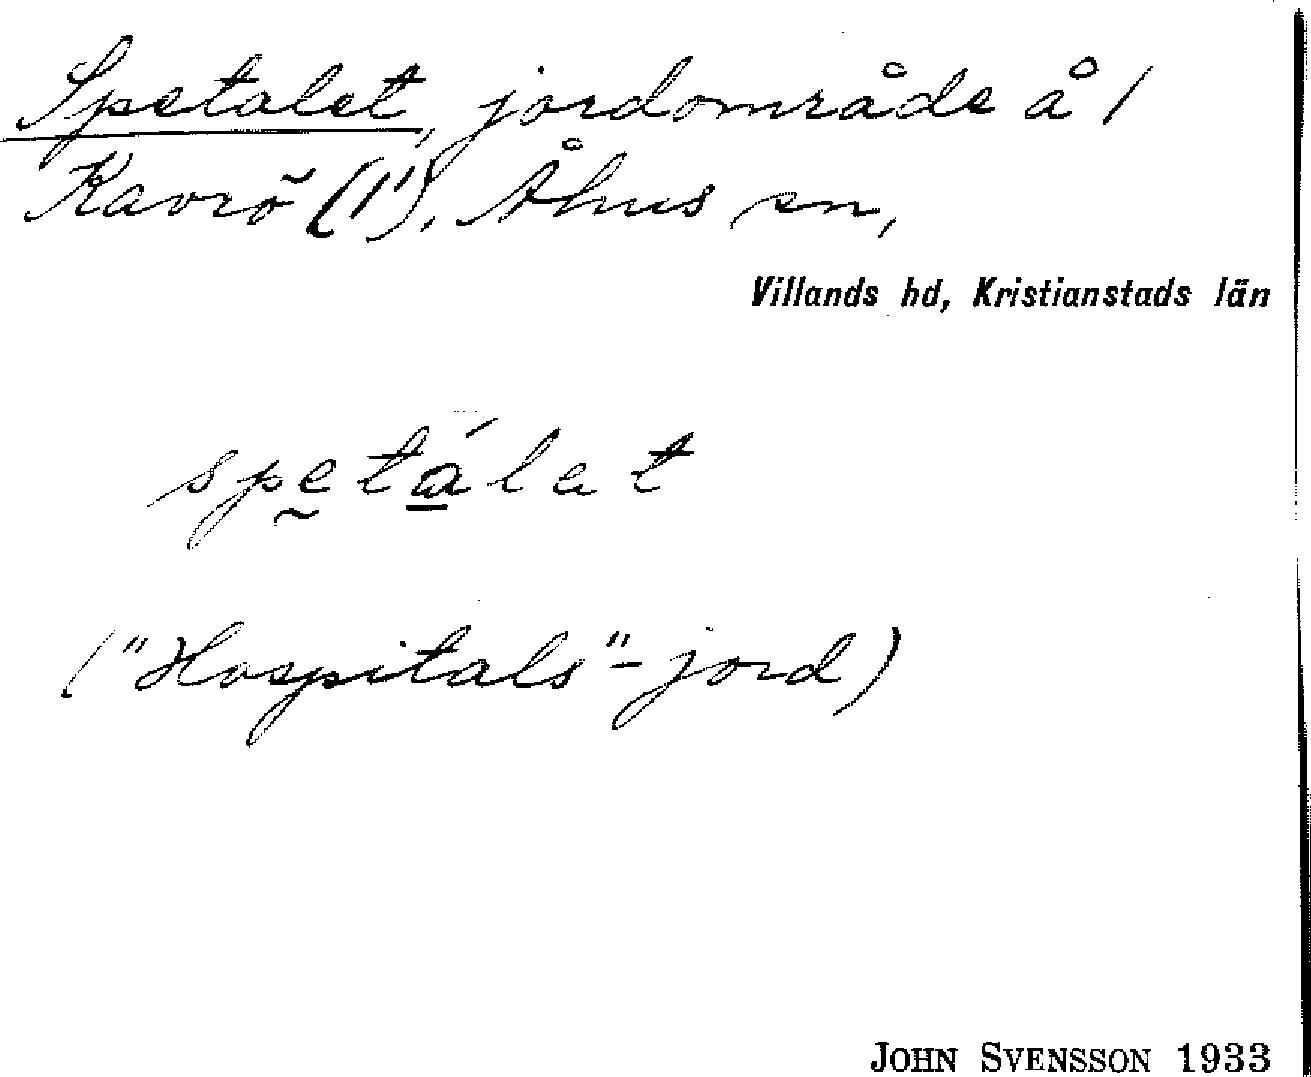 Spetalet, jordområde å /
Kavrö (1"), Åhus sn,
Villands hd, Kristianstads län
spetálet
("Hospitals"-jord)
JOHN SVENSSON 1933